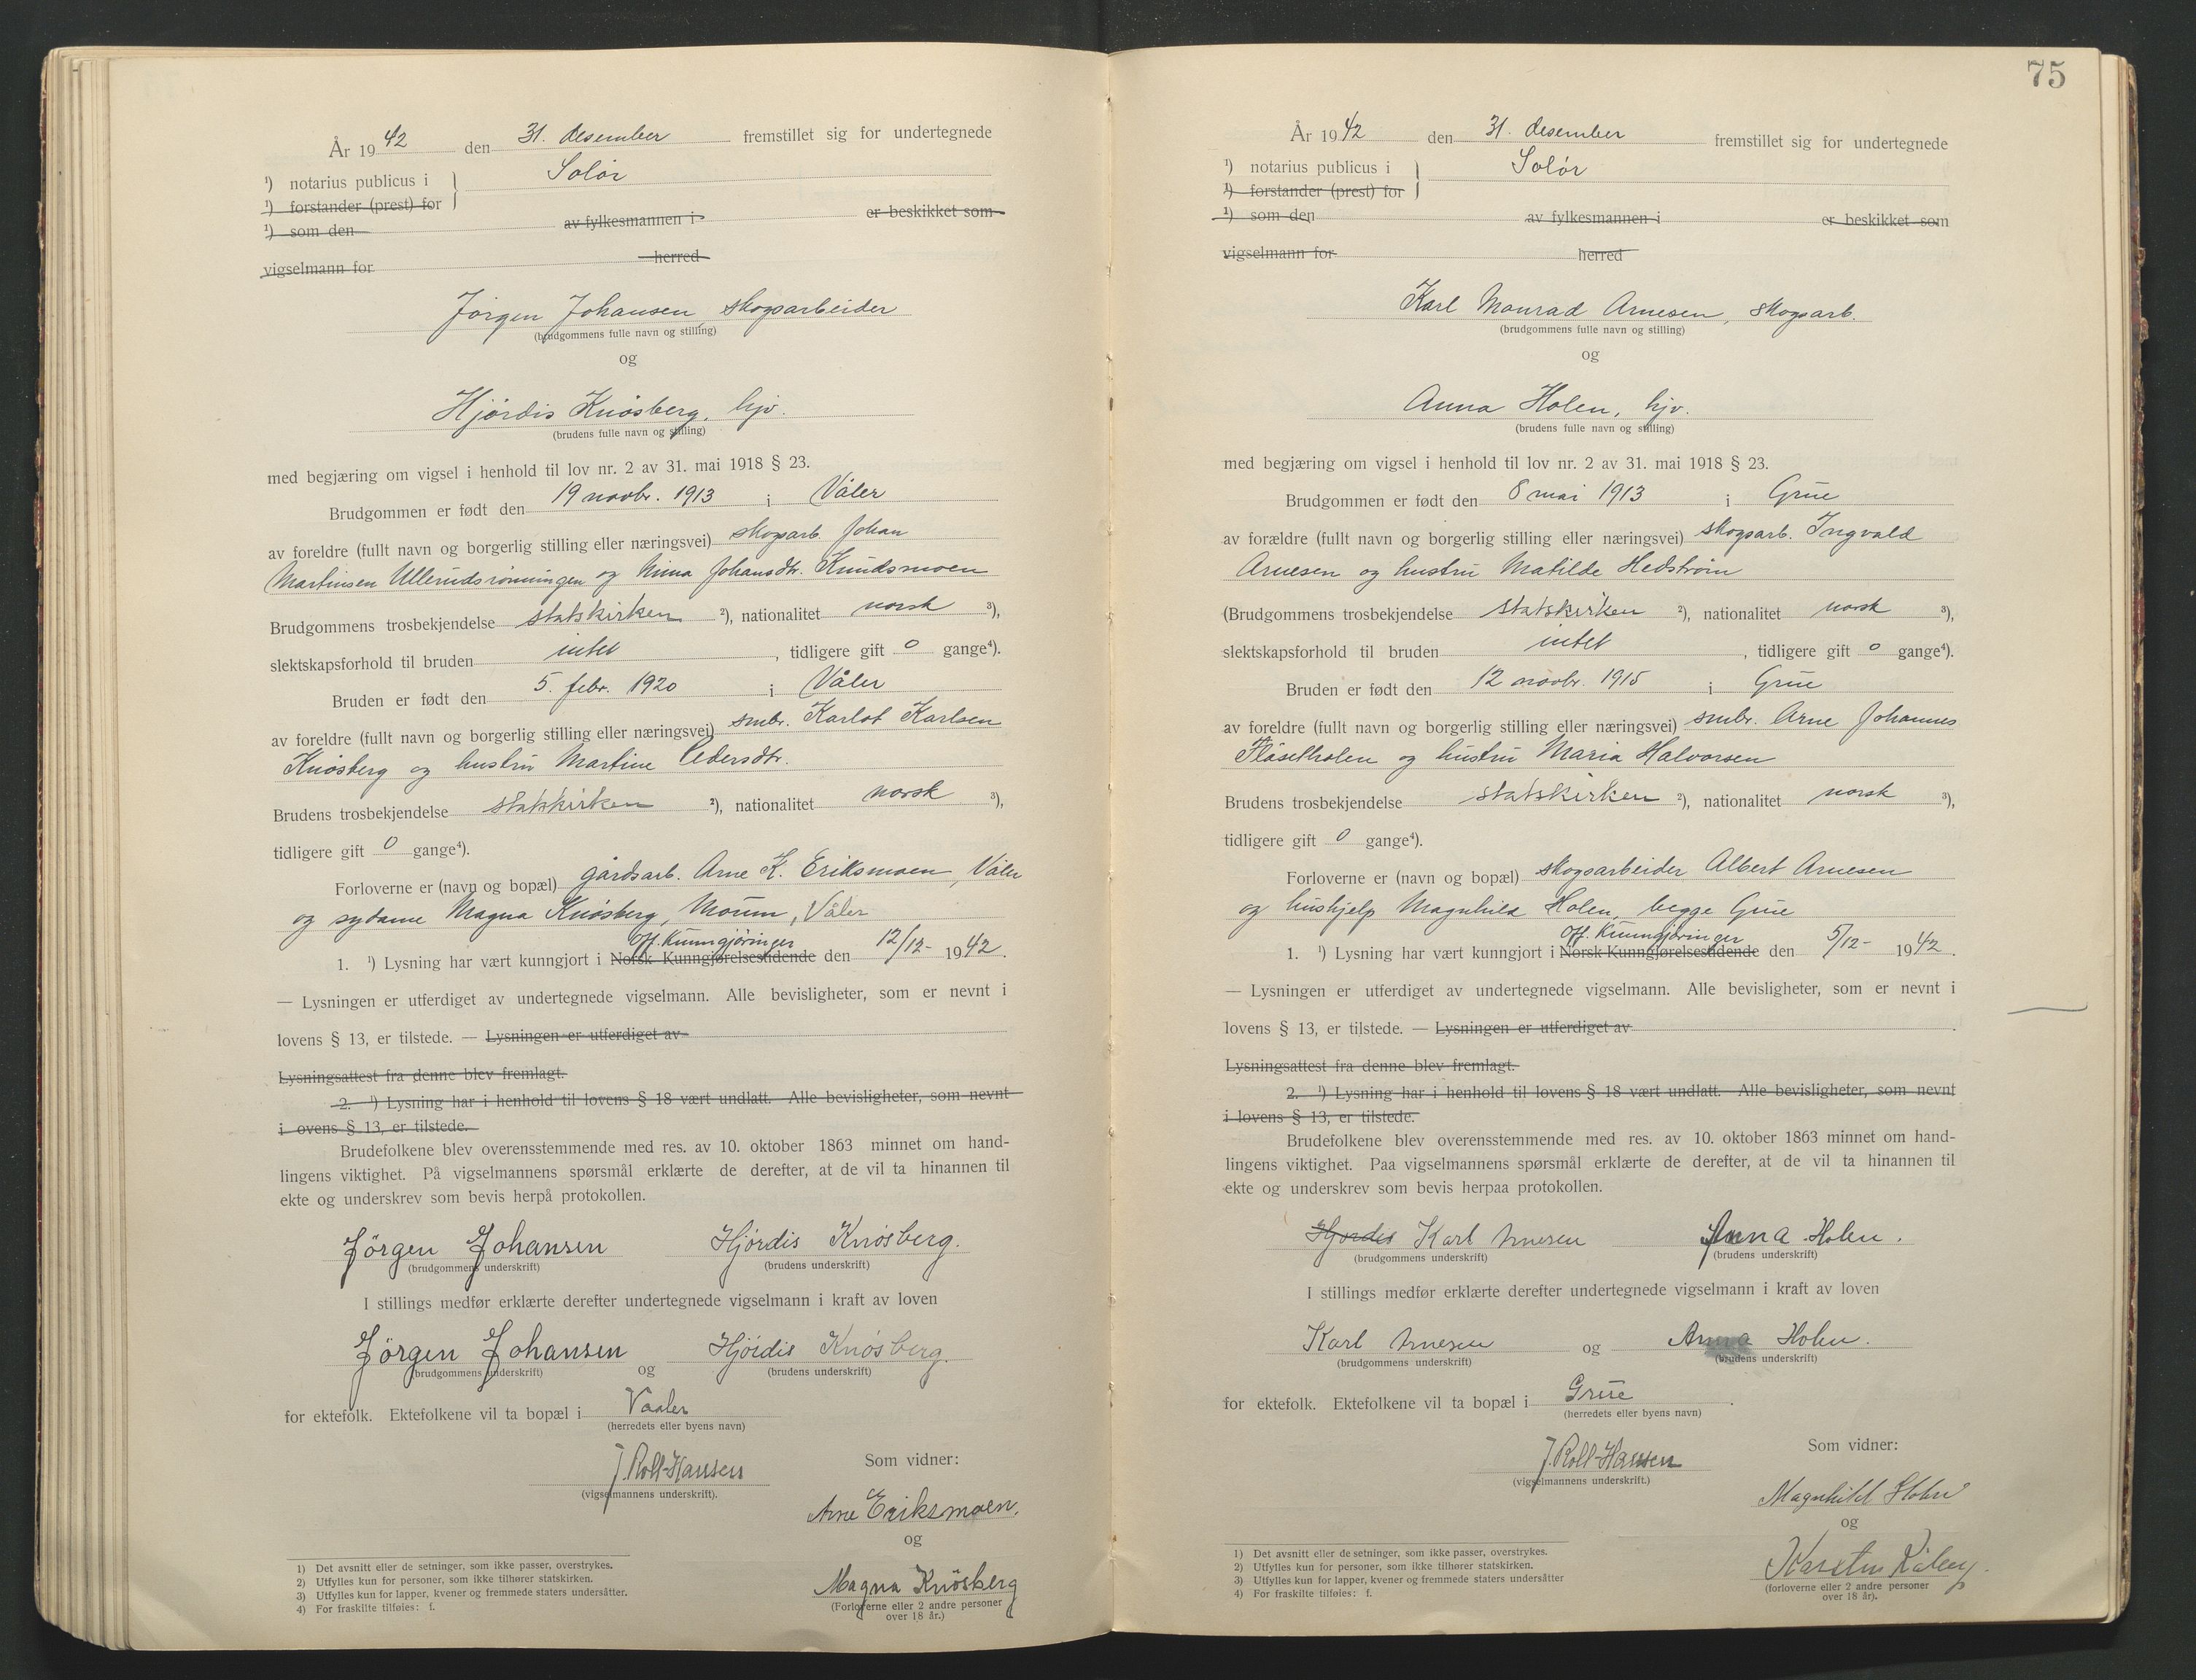 År 1942 den 31. desember fremstillet sig for undertegnede
¹) notarius publicus i } Solør
¹) forstander (prest) for
¹) som den av fylkesmannen i er beskikket som
vigselmann for herred
Jørgen Johansen, skogsarbeider
(brudgommens fulle navn og stilling)
og
Hjördis Knösberg, hjv.
(brudens fulle navn og stilling)
med begjæring om vigsel i henhold til lov nr. 2 av 31. mai 1918 § 23.
Brudgommen er født den 19 novbr. 1913 i Våler
av foreldre (fullt navn og borgerlig stilling eller næringsvei) skogsarb. Johan
Martinsen Ullerudsrönningen og Nima Johansdtr. Knudsmoen
Brudgommens trosbekjendelse statskirken ²), nationalitet norsk ³),
slektskapsforhold til bruden intet, tidligere gift 0 gange⁴).
Bruden er født den 5. febr. 1920 i Våler
av foreldre (fullt navn og borgerlig stilling eller næringsvei) smbr. Karlot Karlsen
Knösberg og hustru Martine Pedersdtr.
Brudens trosbekjendelse statskirken ²), nationalitet norsk ³),
tidligere gift 0 gange⁴).
Forloverne er (navn og bopæl) gårdsarb. Arne K. Eriksmoen, Våler
og sydame Magna Knösberg, Moum, Våler
Off. Kunngjöringer
1. ¹) Lysning har vært kunngjort i Norsk Kunngjørelsestidende den 12/12- 1942.
— Lysningen er utferdiget av undertegnede vigselmann. Alle bevisligheter, som er nevnt i
lovens § 13, er tilstede. — Lysningen er utferdiget av
Lysningsattest fra denne blev fremlagt.
2. ¹) Lysning har i henhold til lovens § 18 vært undlatt. Alle bevisligheter, som nevnt
i ovens § 13, er tilstede.
Brudefolkene blev overensstemmende med res. av 10. oktober 1863 minnet om hand-
lingens viktighet. På vigselmannens spørsmål erklærte de derefter, at de vil ta hinannen til
ekte og underskrev som bevis herpå protokollen.
Jörgen Johansen Hjördis Knösberg.
(brudgommens underskrift) (brudens underskrift)
I stillings medfør erklærte derefter undertegnede vigselmann i kraft av loven
Jörgen Johansen og Hjördis Knösberg.
(brudgommens underskrift) (brudens underskrift)
for ektefolk. Ektefolkene vil ta bopæl i Vaaler
(herredets eller byens navn)
J. Roll-Hansen
(vigselmannens underskrift).
Som vidner:
Arne Eriksmoen.
og
Magna Knösberg
(Forloverne eller 2 andre personer
over 18 år.)
1) Det avsnitt eller de setninger, som ikke passer, overstrykes.
2) Utfylles kun for personer, som ikke tilhører statskirken.
3) Utfylles kun for lapper, kvener og fremmede staters undersåtter.
4) For fraskilte tilføies: f.
75
År 1942 den 31. desember fremstillet sig for undertegnede
¹) notarius publicus i } Solør
¹) forstander (prest) for
¹) som den av fylkesmannen i er beskikket som
vigselmann for herred
Karl Monrad Arnesen, skogsarb.
(brudgommens fulle navn og stilling)
og
Anna Holen, hjv.
(brudens fulle navn og stilling)
med begjæring om vigsel i henhold til lov nr. 2 av 31. mai 1918 § 23.
Brudgommen er født den 8 mai 1913 i Grue
av forældre (fullt navn og borgerlig stilling eller næringsvei) skogsarb. Ingvald
Arnesen og hustru Matilde Hedström
(Brudgommens trosbekjendelse statskirken ²), nationalitet norsk ³),
slektskapsforhold til bruden intet, tidligere gift 0 gange⁴).
Bruden er født den 12 novbr. 1915 i Grue
av foreldre (fullt navn og borgerlig stilling eller næringsvei) smbr. Arne Johannes
Flåsetholen og hustru Maria Halvorsen
Brudens trosbekjendelse statskirken ²), nationalitet norsk ³),
tidligere gift 0 gange⁴).
Forloverne er (navn og bopæl) skogsarbeider Albert Arnesen
og hushjelp Magnhild Holen, begge Grue
Off. Kunngjöringer
1. ¹) Lysning har vært kunngjort i Norsk Kunngjørelsestidende den 5/12- 1942.
— Lysningen er utferdiget av undertegnede vigselmann. Alle bevisligheter, som er nevnt i
lovens § 13, er tilstede. — Lysningen er utferdiget av.
Lysningsattest fra denne blev fremlagt.
2. ¹) Lysning har i henhold til lovens § 18 vært undlatt. Alle bevisligheter, som nevnt
i lovens § 13, er tilstede.
Brudefolkene blev overensstemmende med res. av 10. oktober 1863 minnet om hand-
lingens viktighet. Paa vigselmannens spørsmål erklærte de derefter, at de vil ta hinannen til
ekte og underskrev som bevis herpaa protokollen.
Hjordis Karl Arnesen Anna Holen.
(brudgommens underskrift) (brudens underskrift)
I stillings medfør erklærte derefter undertegnede vigselmann i kraft av loven
Karl Arnesen og Anna Holen.
(brudgommens underskrift) (brudens underskrift)
for ektefolk. Ektefolkene vil ta bopæl i Grue.
(herredets eller byens navn)
J. Roll-Hansen
(vigselmannens underskrift.)
Som vidner:
Magnhild Holen
og
(forloverne eller 2 andre personer
over 18 år).
1) Det avsnitt eller de setninger, som ikke passer, overstrykes.
2) Utfylles kun for personer, som ikke tilhører statskirken.
3) Utfylles kun for lapper, kvener og fremmede staters undersåtter
4) For fraskilte tilføies: f.